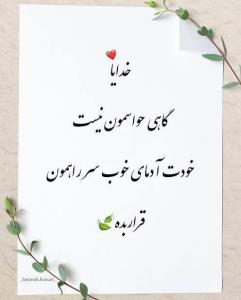 خدایا
گاهی حواسمون نیست
خودت آدمای خوب سر راهمون
قرار بده